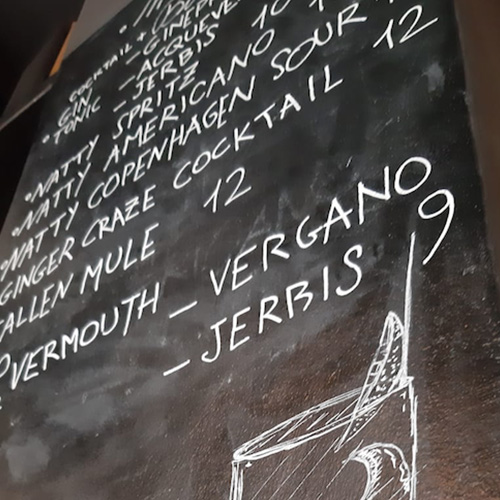 COCKTAIL +
GIN - GINEPR
TONIC - ACQUEVE
- JERBIS 10
• NATTY SPRITZ
• NATTY AMERICANO
• NATTY COPENHAGEN SOUR 12
• GINGER CRAZE COCKTAIL
ALLEN MULE 12
VERMOUTH - VERGANO 9
- JERBIS